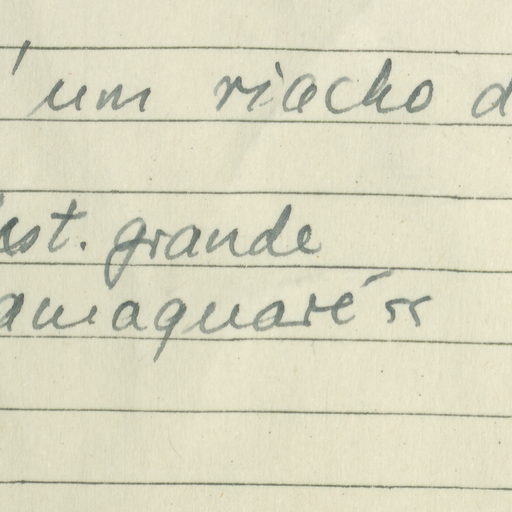 um riacho d
est. grande
amaquaré"